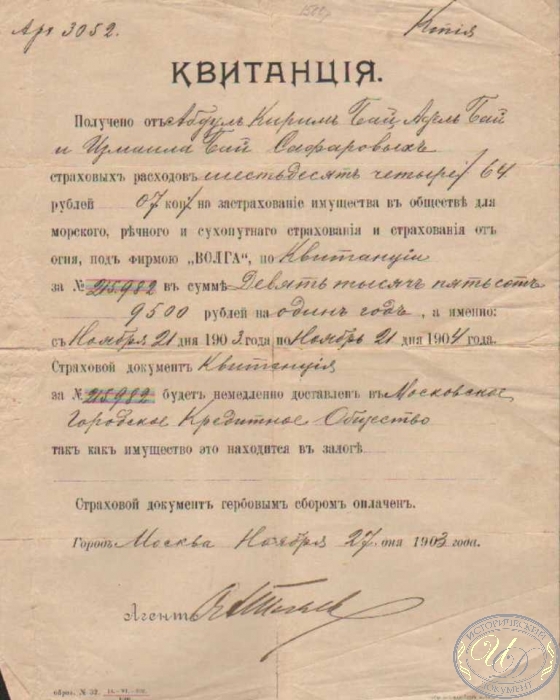 Арх 3052.
Кттія
КВИТАНЦІЯ.
Получено отъ Абдулъ Киримъ Бай Адль Бай
и Измаила Бай Сафаровыхъ
страховыхъ расходовъ шестьдесятъ четыре/64
рублей 07 коп/ на застрахованіе имущества въ обществѣ для
морского, рѣчного и сухопутнаго страхованія и страхованія отъ
огня, подъ фирмою „ВОЛГА“, по Квитанціи
за № 215982 въ суммѣ Девять тысячъ пятьсотъ
9500 рублей на одинъ годъ, а именно:
съ Ноября 21 дня 1903 года по Ноябрь 21 дня 1904 года.
Страховой документъ Квитанція
за № 215982 будетъ немедленно доставленъ въ Московское
Городское Кредитное Общество
такъ какъ имущество это находится въ залогѣ
Страховой документъ гербовымъ сборомъ оплаченъ.
Городъ Москва Ноября 27 дня 1903 года.
Агентъ
образ. № 32.
ИСТОРИЧЕСКИЙ
ИД
ДОКУМЕНТ